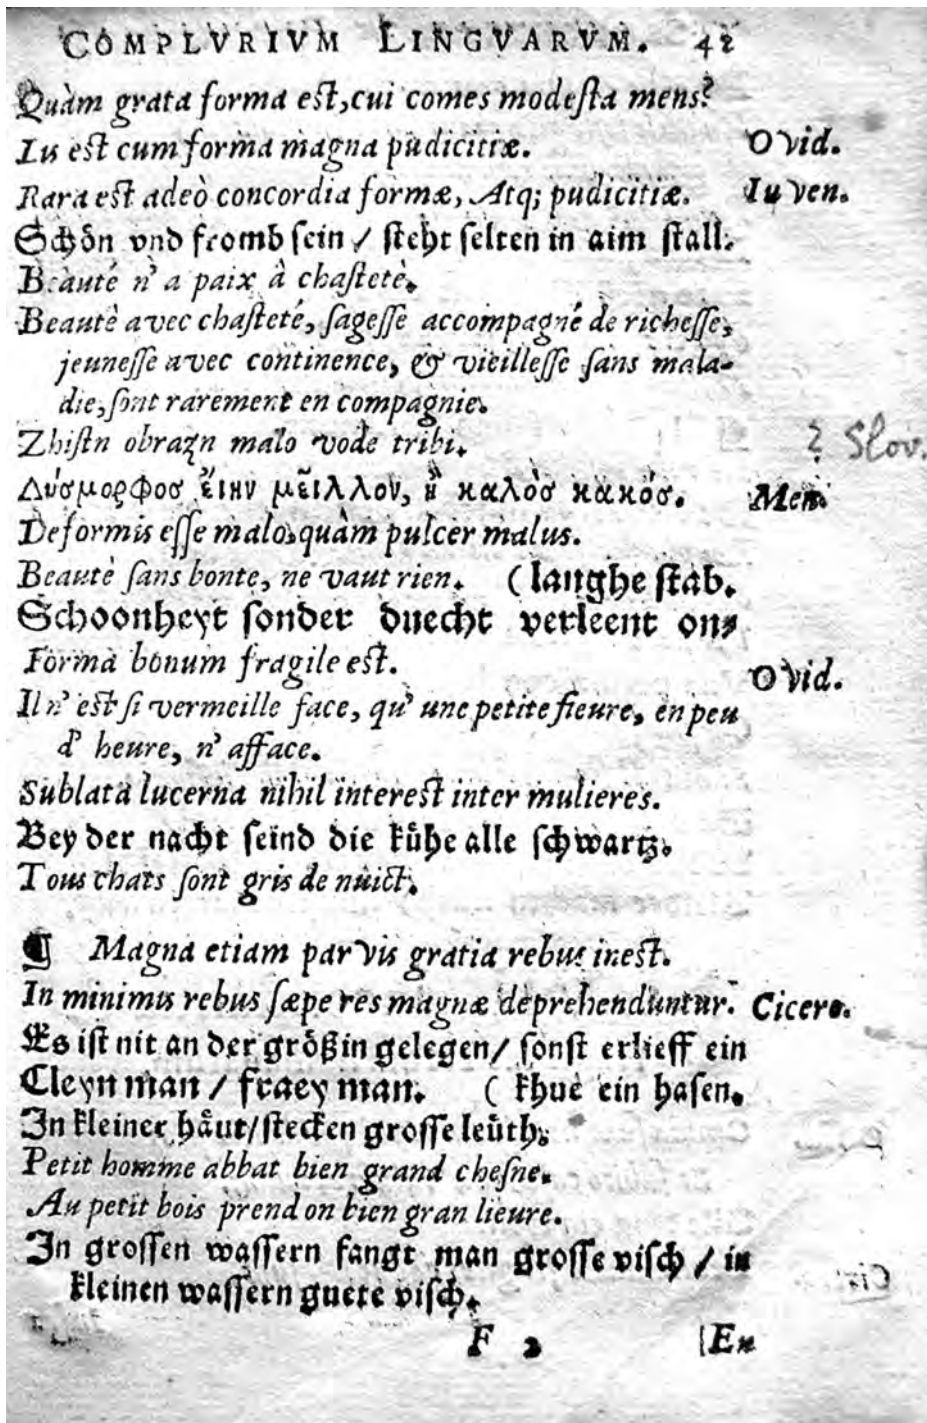 COMPLVRIVM LINGVARVM. 42
Quàm grata forma est, cui comes modesta mens?
Lis est cum forma magna pudicitiæ. Ovid.
Rara est adeò concordia formæ, Atq; pudicitiæ. Iuven.
Schön vnd fromb sein / steht selten in aim stall.
Beauté n'a paix à chastetè.
Beautè avec chasteté, sagesse accompagné de richesse,
jeunesse avec continence, & vieillesse sans mala-
die, sont rarement en compagnie.
Zhistn obrazn malo vode tribi.
? Slov.
Δύσμορφοσ εἴην μᾶλλον, ἢ καλὸσ κακόσ. Men.
Deformis esse malo, quàm pulcer malus.
Beautè sans bonte, ne vaut rien. (langhe stab.
Schoonheyt sonder duecht verleent on-
Forma bonum fragile est. Ovid.
Il n'est si vermeille face, qu' une petite fieure, en peu
d' heure, n' afface.
Sublata lucerna nihil interest inter mulieres.
Bey der nacht seind die kühe alle schwartz.
Tous chats sont gris de nuict.
¶ Magna etiam parvis gratia rebus inest.
In minimis rebus sæpe res magnæ deprehenduntur. Cicero.
Es ist nit an der größin gelegen / sonst erlieff ein
Cleyn man / fraey man. ( khue ein hasen.
In kleiner häut / stecken grosse leüth.
Petit homme abbat bien grand chesne.
Au petit bois prend on bien gran lieure.
In grossen wassern fangt man grosse visch / in
kleinen wassern guete visch.
F 2 En